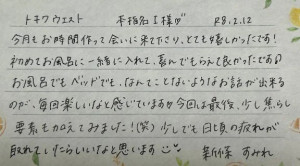 トキワ ウエスト　本指名 I 様が　R8.2.12
今月もお時間作って会いに来て下さり、とても嬉しかったです!
初めてお風呂に一緒に入れて、喜んでもらえて良かったです
お風呂でもベッドでも、なんてことないようなお話が出来る
のが、毎回楽しいなと感じています 今回は最後、少し焦らし
要素も加えてみました!(笑) 少しでも日頃の疲れが
取れていたらいいなと思います
新條 すみれ